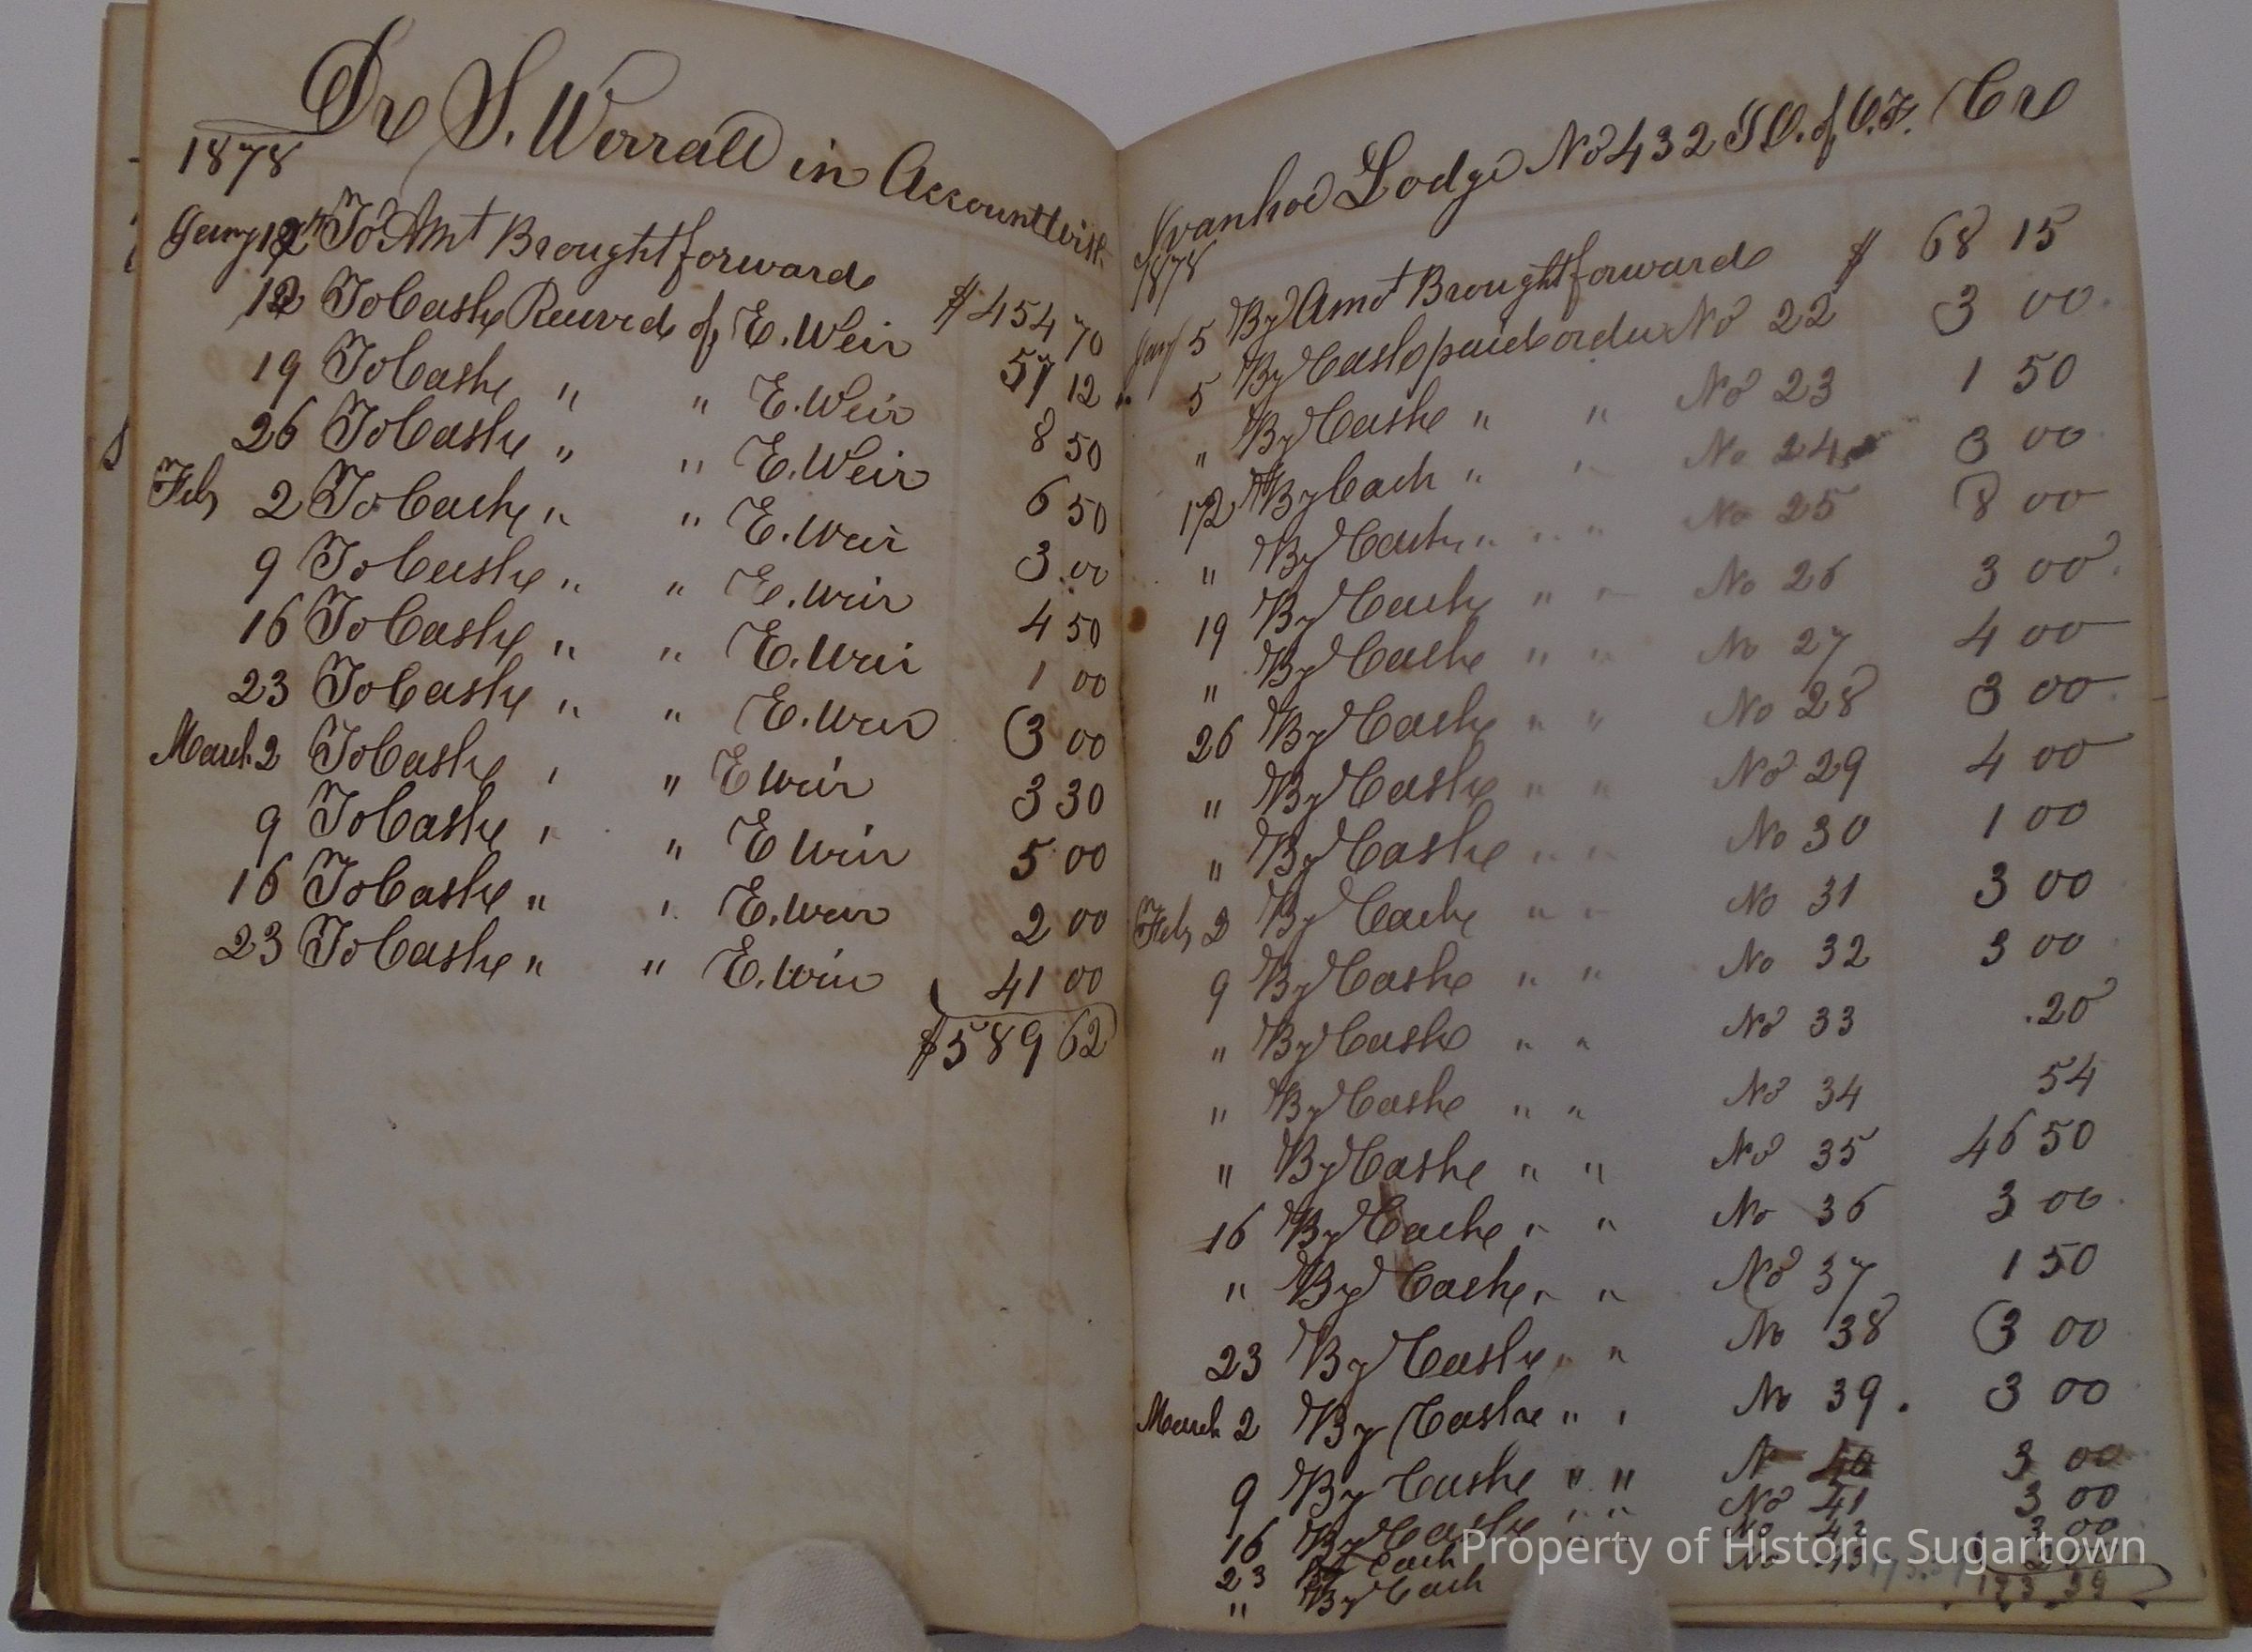 Dr S. Worrall in Account with
1878
Jany 12th To Amt Brought forward $454 70
12 To Cash Received of E. Weir 57 12
19 To Cash " " E. Weir 8 50
26 To Cash " " E. Weir 6 50
Feb 2 To Cash " " E. Weir 3.00
9 To Cash " " E. Weir 4 50
16 To Cash " " E. Weir 1 00
23 To Cash " " E. Weir 3 00
March 2 To Cash " " E Weir 3 30
9 To Cash " " E Weir 5 00
16 To Cash " " E. Weir 2 00
23 To Cash " " E. Weir 41 00
$589 62
Ivanhoe Lodge No 432 I.O. of O.F. Cr
1878
Jany 5 By Amt Brought forward $ 68 15
5 By Cash paid order No 22 3 00
" By Cash " " No 23 1 50
12 By Cash " " No 24 3 00
" By Cash " " No 25 8 00
19 By Cash " " No 26 3 00
" By Cash " " No 27 4 00
26 By Cash " " No 28 3 00
" By Cash " " No 29 4 00
" By Cash " " No 30 1 00
Feb 2 By Cash " " No 31 3 00
9 By Cash " " No 32 3 00
" By Cash " " No 33 .20
" By Cash " " No 34 54
" By Cash " " No 35 46 50
16 By Cash " " No 36 3 00
" By Cash " " No 37 1 50
23 By Cash " " No 38 3 00
March 2 By Cash " " No 39. 3 00
9 By Cash " " No 40 3 00
16 By Cash " " No 41 3 00
23 By Cash No 42 3 00
" By Cash No 43
173 39
Property of Historic Sugartown